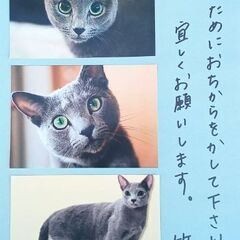 ためにおちからをかして下さい
宜しくお願いします。